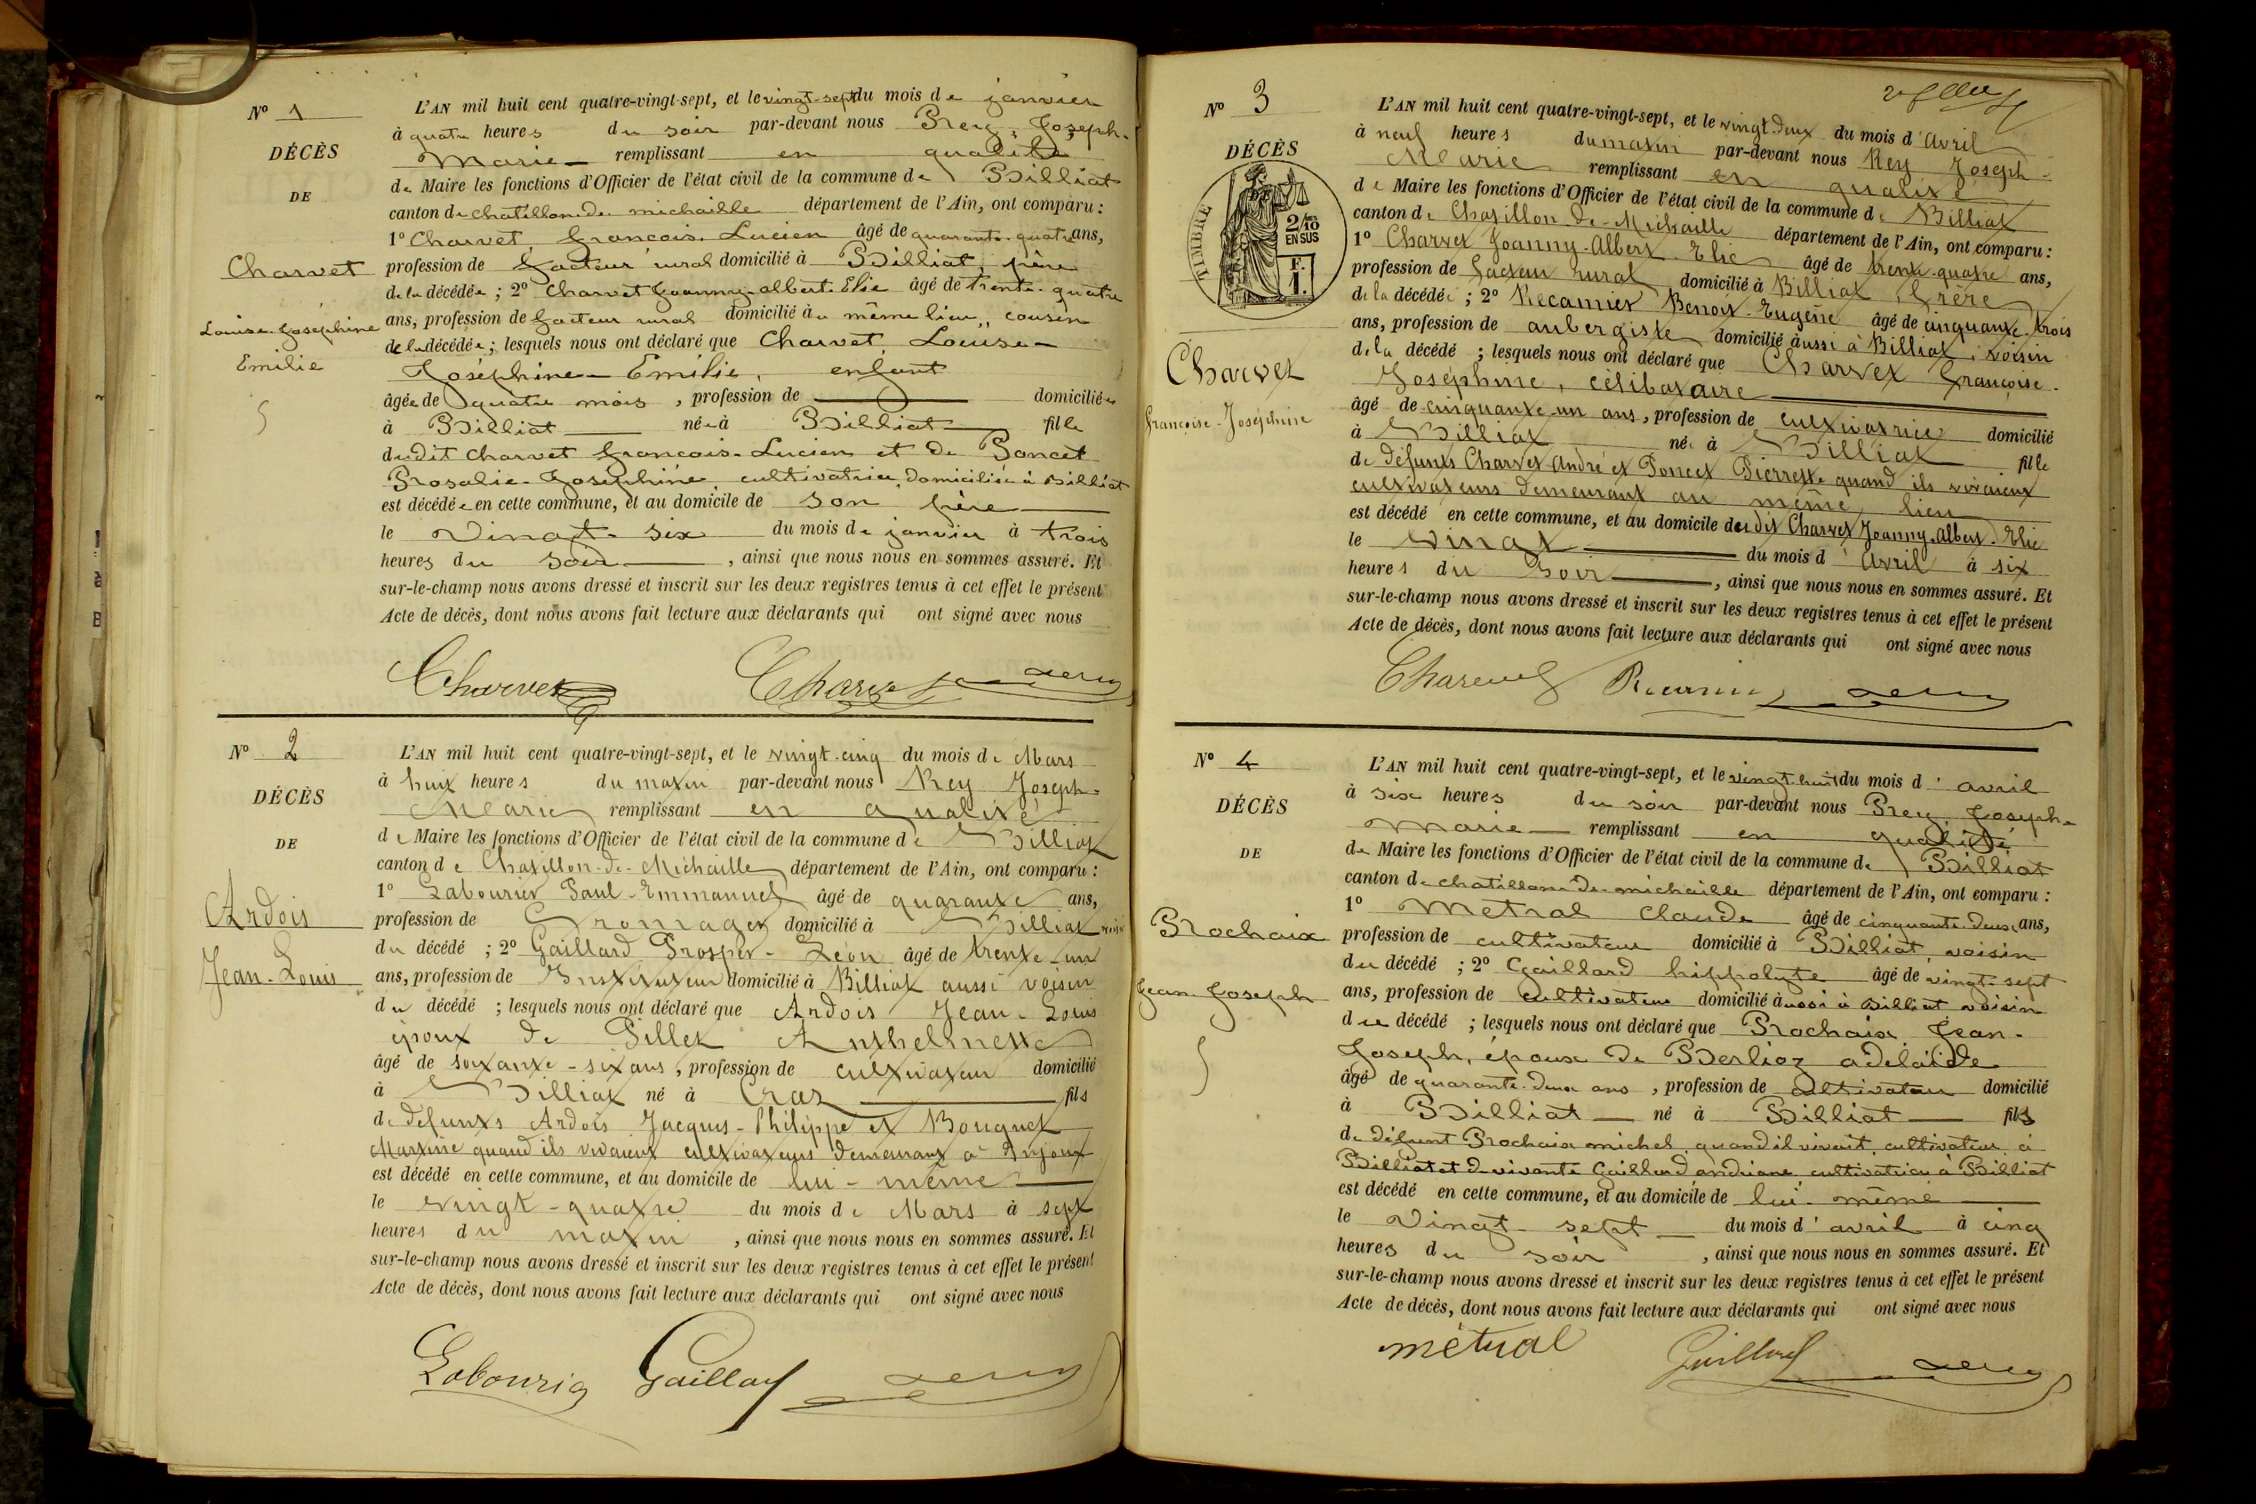 N° 1
DÉCÈS
DE
Charvet
Louise-Joséphine
Emilie
L'AN mil huit cent quatre-vingt-sept, et le vingt-sept du mois de janvier
à quatre heures du soir par-devant nous Rey, Joseph-
Marie remplissant en qualité
de Maire les fonctions d'Officier de l'état civil de la commune de Billiat
canton de chatillon-de-michaille département de l'Ain, ont comparu :
1° Charvet, François-Lucien âgé de quarante-quatre ans,
profession de facteur rural domicilié à Billiat, père
de la décédée ; 2° Charvet Joanny-albert-Elie âgé de trente-quatre
ans, profession de facteur rural domicilié au même lieu, cousin
de la décédée ; lesquels nous ont déclaré que Charvet, Louise-
Joséphine-Emilie, enfant
âgée de quatre mois, profession de domiciliée
à Billiat née à Billiat fille
dudit Charvet François-Lucien et de Poncet
Rosalie-Joséphine, cultivatrice, domiciliée à Billiat
est décédée en cette commune, et au domicile de son père
le Vingt-six du mois de janvier à trois
heures du soir, ainsi que nous nous en sommes assuré. Et
sur-le-champ nous avons dressé et inscrit sur les deux registres tenus à cet effet le présent
Acte de décès, dont nous avons fait lecture aux déclarants qui ont signé avec nous
Charvet Charvet
N° 2
DÉCÈS
DE
Ardois
Jean-Louis
L'AN mil huit cent quatre-vingt-sept, et le vingt-cinq du mois de Mars
à huit heures du matin par-devant nous Rey Joseph-
Marie remplissant en qualité
de Maire les fonctions d'Officier de l'état civil de la commune de Billiat
canton de Chatillon-de-Michaille département de l'Ain, ont comparu :
1° Labourier Paul-Emmanuel âgé de quarante ans,
profession de Fromager domicilié à Billiat voisin
du décédé ; 2° Gaillard Prosper-Léon âgé de trente-un
ans, profession de Instituteur domicilié à Billiat aussi voisin
du décédé ; lesquels nous ont déclaré que Ardois Jean-Louis
époux de Pillet Anthelmette
âgé de soixante-six ans, profession de cultivateur domicilié
à Billiat né à Craz fils
de défunts Ardois Jacques-Philippe et Bouquet
Martine quand ils vivaient cultivateurs demeurant à Injoux
est décédé en cette commune, et au domicile de lui-même
le vingt-quatre du mois de Mars à sept
heures du matin, ainsi que nous nous en sommes assuré. Et
sur-le-champ nous avons dressé et inscrit sur les deux registres tenus à cet effet le présent
Acte de décès, dont nous avons fait lecture aux déclarants qui ont signé avec nous
Labourier Gaillard
N° 3
DÉCÈS
TIMBRE
2/10 EN SUS
F. 1.
Charvet
Françoise-Joséphine
L'AN mil huit cent quatre-vingt-sept, et le vingt-deux du mois d'Avril
à neuf heures du matin par-devant nous Rey Joseph-
Marie remplissant en qualité
de Maire les fonctions d'Officier de l'état civil de la commune de Billiat
canton de Chatillon-de-Michaille département de l'Ain, ont comparu :
1° Charvet Joanny-Albert-Elie âgé de trente-quatre ans,
profession de facteur rural domicilié à Billiat, frère
de la décédée ; 2° Récamier Benoit-Eugène âgé de cinquante-trois
ans, profession de aubergiste domicilié aussi à Billiat, voisin
de la décédé ; lesquels nous ont déclaré que Charvet Françoise-
Joséphine, célibataire
âgé de cinquante-un ans, profession de cultivatrice domicilié
à Billiat née à Billiat fille
de défunts Charvet André et Poncet Pierrette quand ils vivaient
cultivateurs demeurant au même lieu
est décédé en cette commune, et au domicile du dit Charvet Joanny-Albert-Elie
le vingt du mois d'Avril à six
heures du soir, ainsi que nous nous en sommes assuré. Et
sur-le-champ nous avons dressé et inscrit sur les deux registres tenus à cet effet le présent
Acte de décès, dont nous avons fait lecture aux déclarants qui ont signé avec nous
N° 4
DÉCÈS
DE
Rochaix
Jean-Joseph
L'AN mil huit cent quatre-vingt-sept, et le vingt-huit du mois d'avril
à six heures du soir par-devant nous Rey Joseph-
Marie remplissant en qualité
de Maire les fonctions d'Officier de l'état civil de la commune de Billiat
canton de chatillon-de-michaille département de l'Ain, ont comparu :
1° Metral Claude âgé de cinquante-deux ans,
profession de cultivateur domicilié à Billiat, voisin
du décédé ; 2° Gaillard hippolyte âgé de vingt-sept
ans, profession de cultivateur domicilié aussi à Billiat voisin
du décédé ; lesquels nous ont déclaré que Rochaix Jean-
Joseph, époux de Berlioz adelaïde
âgé de quarante-deux ans, profession de cultivateur domicilié
à Billiat né à Billiat fils
de défunt Rochaix michel, quand il vivait, cultivateur à
Billiat et de vivante Gaillard andriane, cultivatrice à Billiat
est décédé en cette commune, et au domicile de lui-même
le Vingt-sept du mois d'avril à cinq
heures du soir, ainsi que nous nous en sommes assuré. Et
sur-le-champ nous avons dressé et inscrit sur les deux registres tenus à cet effet le présent
Acte de décès, dont nous avons fait lecture aux déclarants qui ont signé avec nous
métral Gaillard